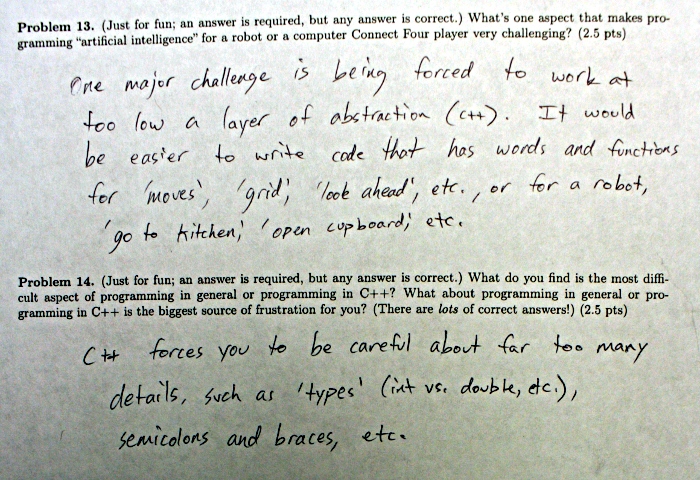 Problem 13. (Just for fun; an answer is required, but any answer is correct.) What's one aspect that makes pro-
gramming "artificial intelligence" for a robot or a computer Connect Four player very challenging? (2.5 pts)
One major challenge is being forced to work at
too low a layer of abstraction (C++). It would
be easier to write code that has words and functions
for 'moves', 'grid', 'look ahead', etc., or for a robot,
'go to kitchen', 'open cupboard', etc.
Problem 14. (Just for fun; an answer is required, but any answer is correct.) What do you find is the most diffi-
cult aspect of programming in general or programming in C++? What about programming in general or pro-
gramming in C++ is the biggest source of frustration for you? (There are lots of correct answers!) (2.5 pts)
C++ forces you to be careful about far too many
details, such as 'types' (int vs. double, etc.),
semicolons and braces, etc.